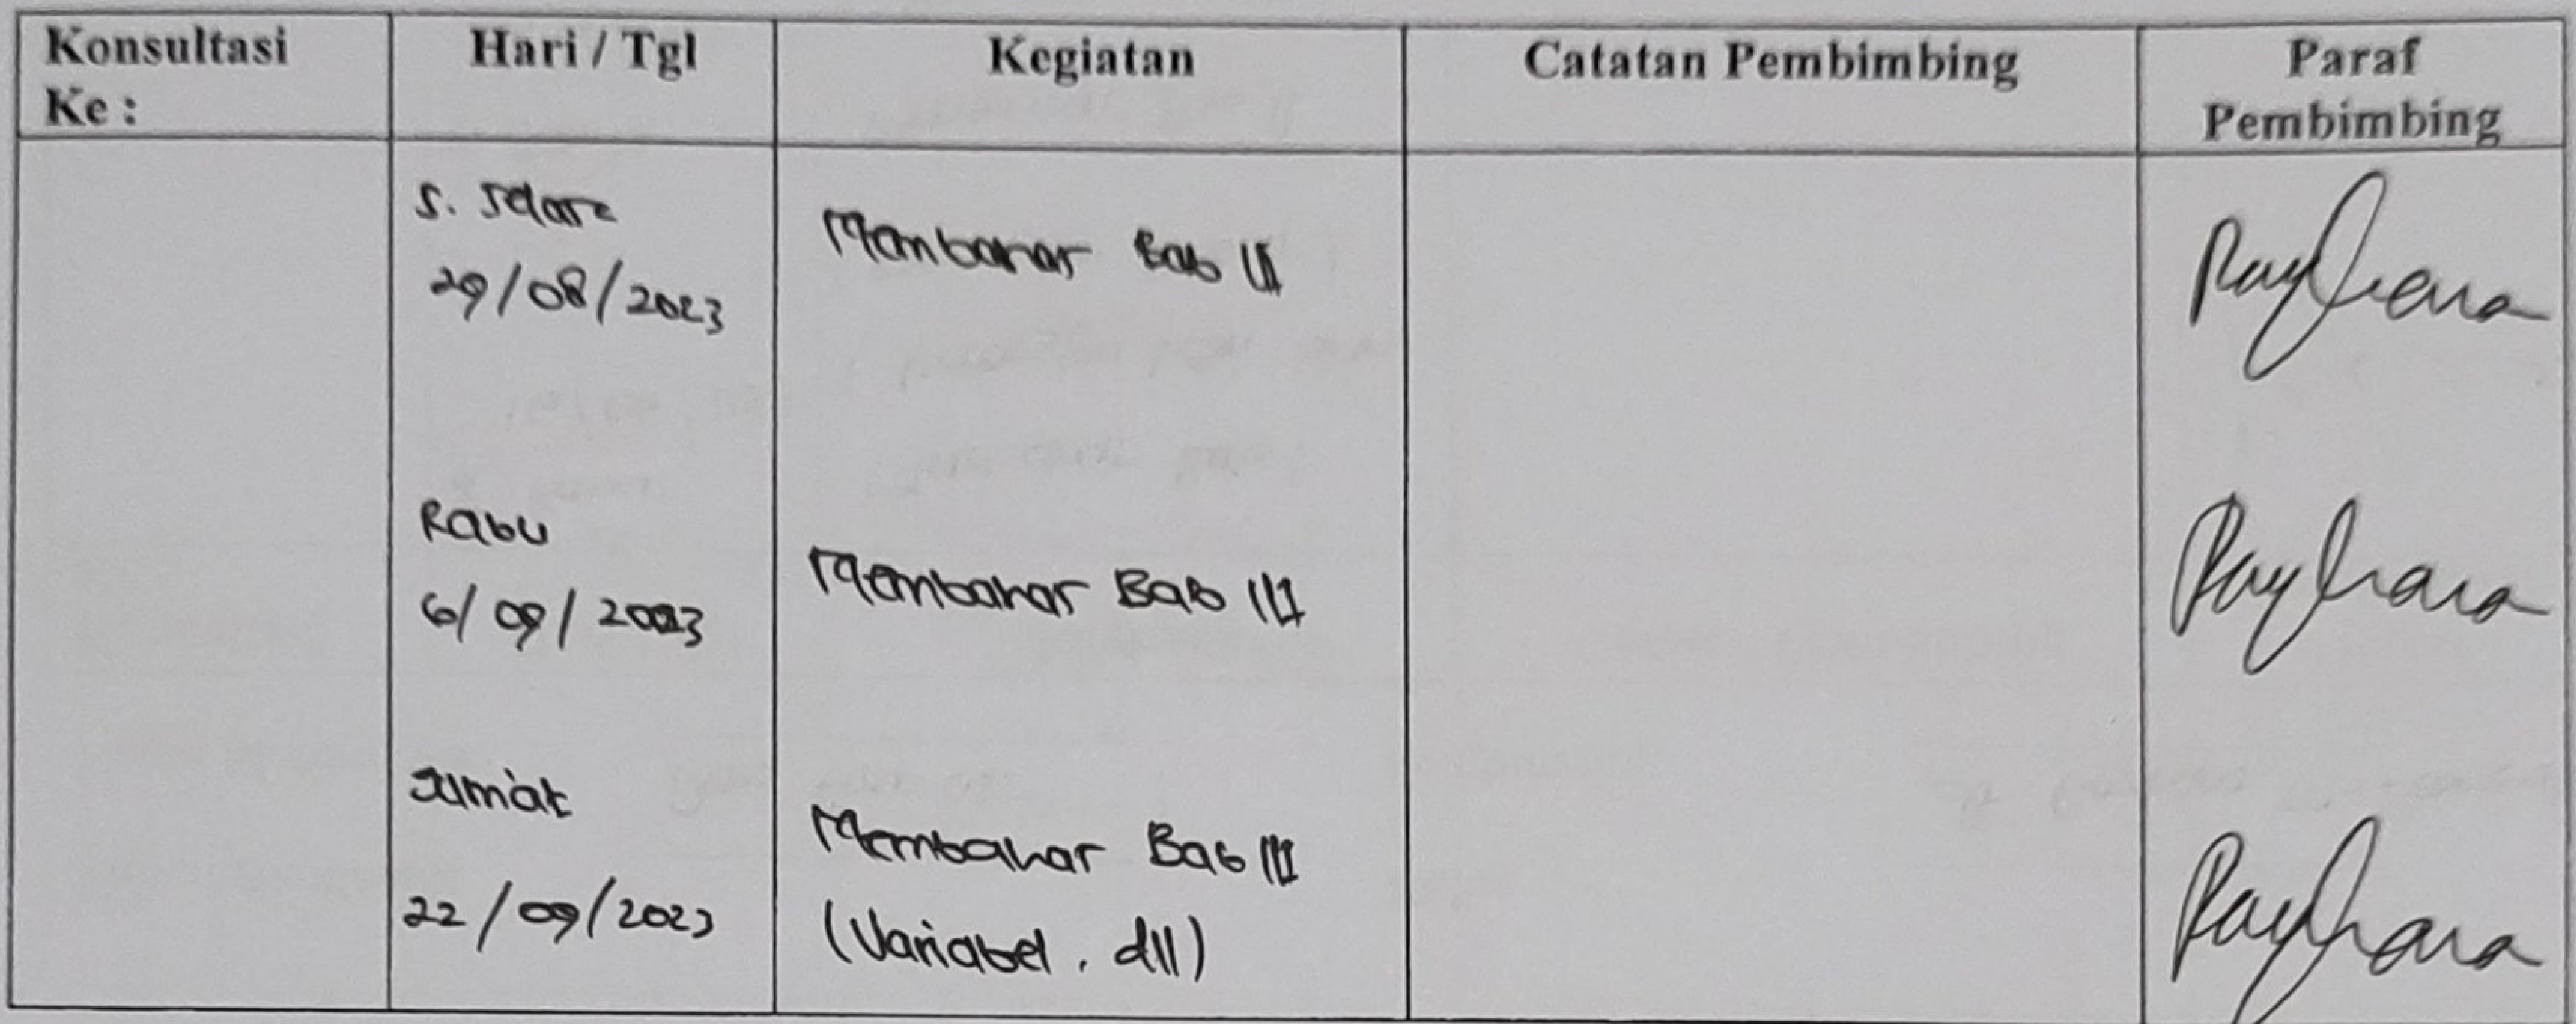 Konsultasi Ke :
Hari / Tgl
Kegiatan
Catatan Pembimbing
Paraf Pembimbing
S. Selasa
29/08/2023
Membahas Bab II
Rabu
6/09/2023
Membahas Bab III
Jumat
22/09/2023
Membahas Bab III
(Variabel, dll)